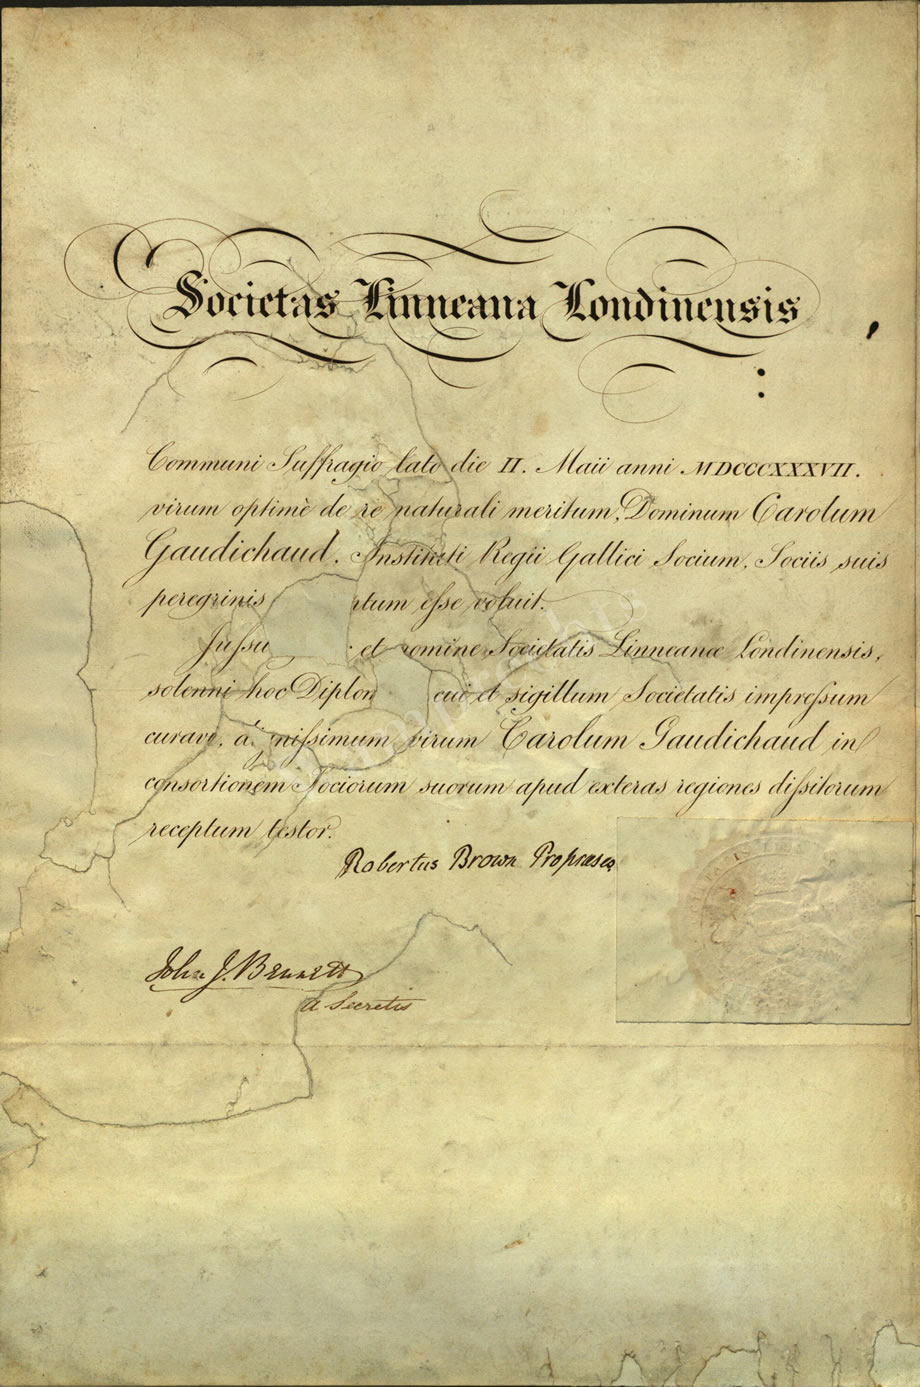 Societas Linneana Londinensis
Communi Suffragio lato die II. Maii anni MDCCCXXXVII.
virum optimè de re naturali meritum, Dominum Carolum
Gaudichaud, Instituti Regii Gallici Socium, Sociis suis
peregrinis tum esse voluit.
Jussu et nomine Societatis Linneanæ Londinensis,
solenni hoc Diplom cui et sigillum Societatis impressum
curavi, d nissimum virum Carolum Gaudichaud in
consortionem Sociorum suorum apud exteras regiones dissitorum
receptum testor.
Robertus Brown Propraeses
John J. Bennett
a Secretis